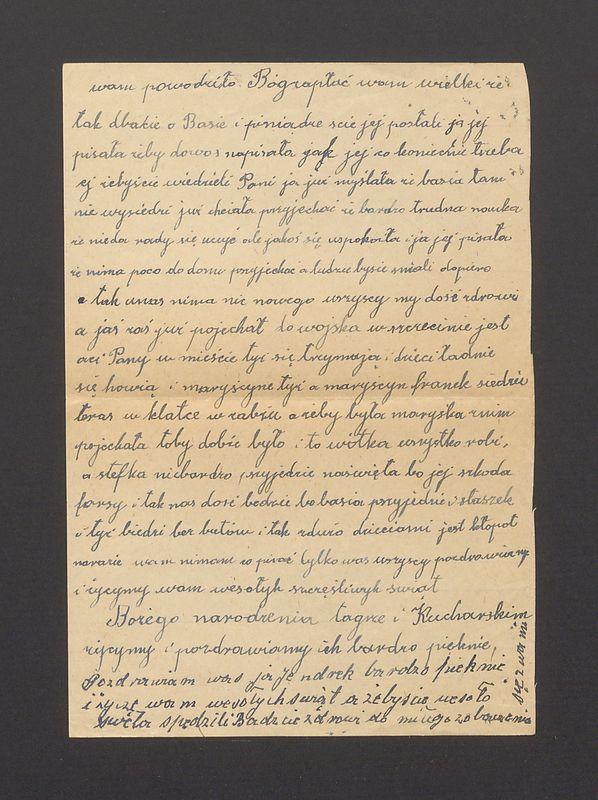 wam powodziło Bógzapłać wam wielki że
tak dbacie o Basie i piniądze scie jej posłali ja jej
pisała żeby dowas napisała jak jej co koniecnie trzeba
ej żebyście wiedzieli Pani ja już myślała że basia tam
nie wysiedzi już chciała przyjechać że bardzo trudna nauka
że nieda rady się ucyć ale jakoś się uspokoiła i ja jej pisała
że nima poco do domu przyjechać a ludzie bysie smiali dopiero
a tak unas nima nic nowego wszyscy my dość zdrowi
a jaś zaś już pojechał do wojska w szczecinie jest
oci Pany w mieście tyż się trzymają i dzieci ładnie
się howią i maryścyne tyż a maryścyn franek siedzi
teras w klatce w rabiu a żeby była maryśka znim
pojechała toby dobże było i to wótka wszystko robi,
a stefka niebardzo przyjedzie naświęta bo jej szkoda
forsy i tak nas dość bedzie bo basia przyjedzie i staszek
i tyż biedzi bez butów i tak zdużo dzieciami jest kłopot
narazie wam nimam co pisać tylko was wszyscy pozdrawiamy
i życymy wam wesołyh szczęśliwyh świąt
Bożego narodzenia i Kucharskim
życymy i pozdrawiamy ich bardzo pieknie,
Pozdrawiam was ja Jendrek bardzo pieknie
i życzę wam wesołych swiąt a żebyscie wesoło
swęta spędzili Badzcie zdrowi do miłego zobaczenia
się z wami